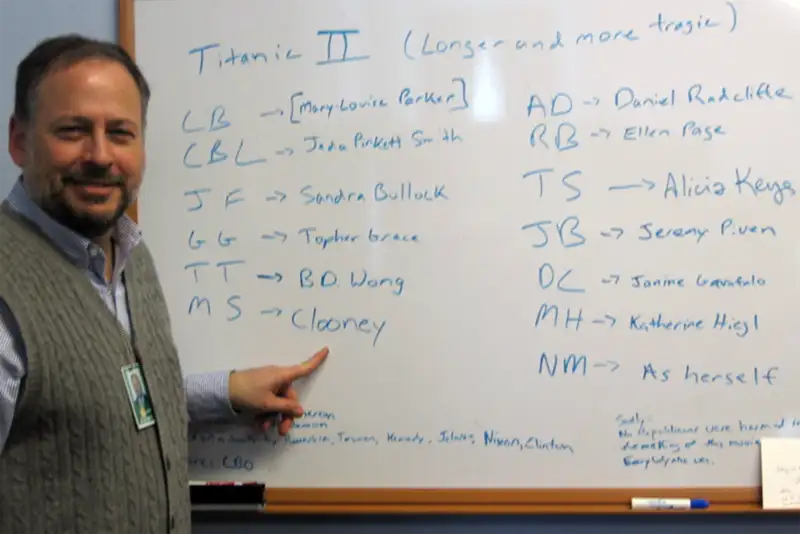 Titanic II (Longer and more tragic)
CB → [Mary-Louise Parker]
CBL → Jada Pinkett Smith
JF → Sandra Bullock
GG → Topher Grace
TT → B.D. Wong
MS → Clooney
AD → Daniel Radcliffe
RB → Ellen Page
TS → Alicia Keys
JB → Jeremy Piven
DC → Janine Garafalo
MH → Katherine Hiegl
NM → As herself
Kennedy, Nixon, Clinton
CBO
No Republicans were harmed in
the making of this movie